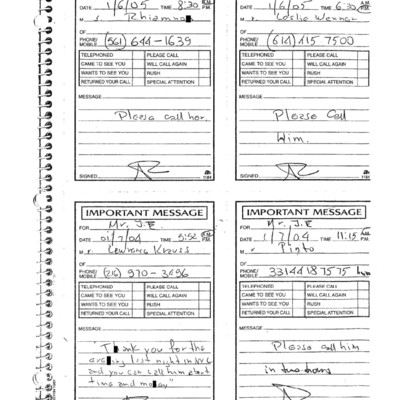 DATE 1/6/05 TIME 8:30 P.M.
M s. Rhianna
OF
PHONE/MOBILE (561) 644-1639
TELEPHONED PLEASE CALL
CAME TO SEE YOU WILL CALL AGAIN
WANTS TO SEE YOU RUSH
RETURNED YOUR CALL SPECIAL ATTENTION
MESSAGE
Please call her.
SIGNED 1184
DATE 1/6/05 TIME 6:30
M r. Leslie Wexner
OF
PHONE/MOBILE (614) 415 7500
TELEPHONED PLEASE CALL
CAME TO SEE YOU WILL CALL AGAIN
WANTS TO SEE YOU RUSH
RETURNED YOUR CALL SPECIAL ATTENTION
MESSAGE
Please Call
Him.
SIGNED 1184
IMPORTANT MESSAGE
FOR Mr. J.E
DATE 01/7/04 TIME 5:52 P.M.
M r. Krauss
OF
PHONE/MOBILE (216) 970-3696
TELEPHONED PLEASE CALL
CAME TO SEE YOU WILL CALL AGAIN
WANTS TO SEE YOU RUSH
RETURNED YOUR CALL SPECIAL ATTENTION
MESSAGE
"Thank you for the
last night in NYC
and you can call him about
time and
IMPORTANT MESSAGE
FOR Mr. J.E
DATE 1/7/04 TIME 11:15
M r. Pinto
OF
PHONE/MOBILE 33144187575
TELEPHONED PLEASE CALL
CAME TO SEE YOU WILL CALL AGAIN
WANTS TO SEE YOU RUSH
RETURNED YOUR CALL SPECIAL ATTENTION
MESSAGE
Please call him
in two hours